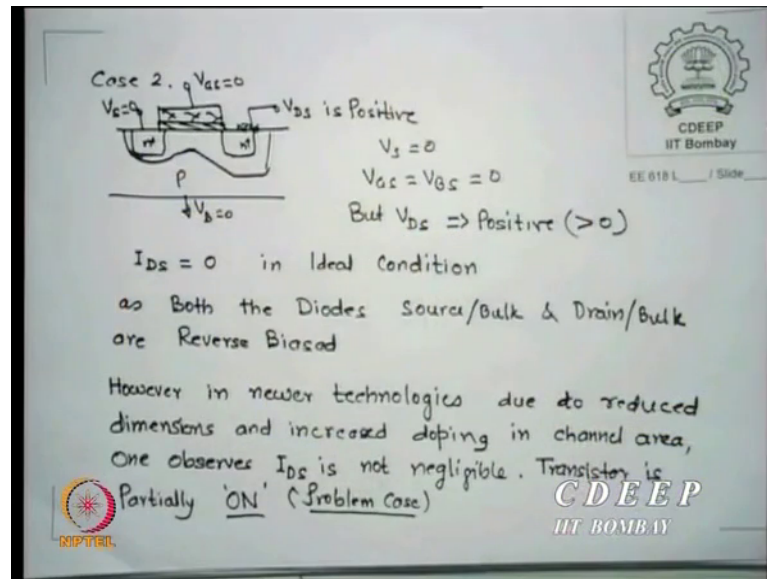 Case 2.
V_GS=0
V_S=0
V_DS is Positive
n+
n+
P
V_B=0
V_S = 0
V_GS = V_BS = 0
But V_DS => Positive (>0)
I_DS = 0 in Ideal Condition
as Both the Diodes Source/Bulk & Drain/Bulk
are Reverse Biased
However in newer technologies due to reduced
dimensions and increased doping in channel area,
One observes I_DS is not negligible. Transistor is
Partially 'ON' (Problem Case)
CDEEP
IIT Bombay
EE 618 L____ / Slide____
NPTEL
CDEEP
IIT BOMBAY